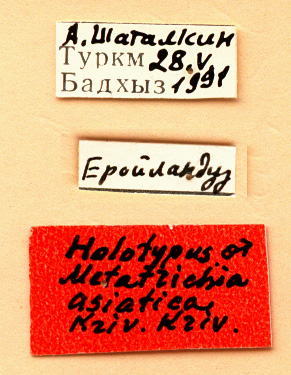 А. Шаталкин
Туркм 28.V
Бадхыз 1991
Еройландуз
Holotypus ♂
Metatrichia
asiatica,
Kriv. Kriv.